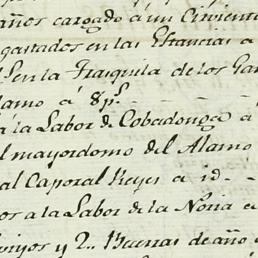 años cargado á un Civient
gastados en las Estancias a
en la Trasquila de los Gan
lamo á 8 p.s
a la Labor de Cobadonga á
l mayordomo del Alamo
al Caporal Reyes a id
os a la Labor de la Noria e
y 2.. Buenas de año